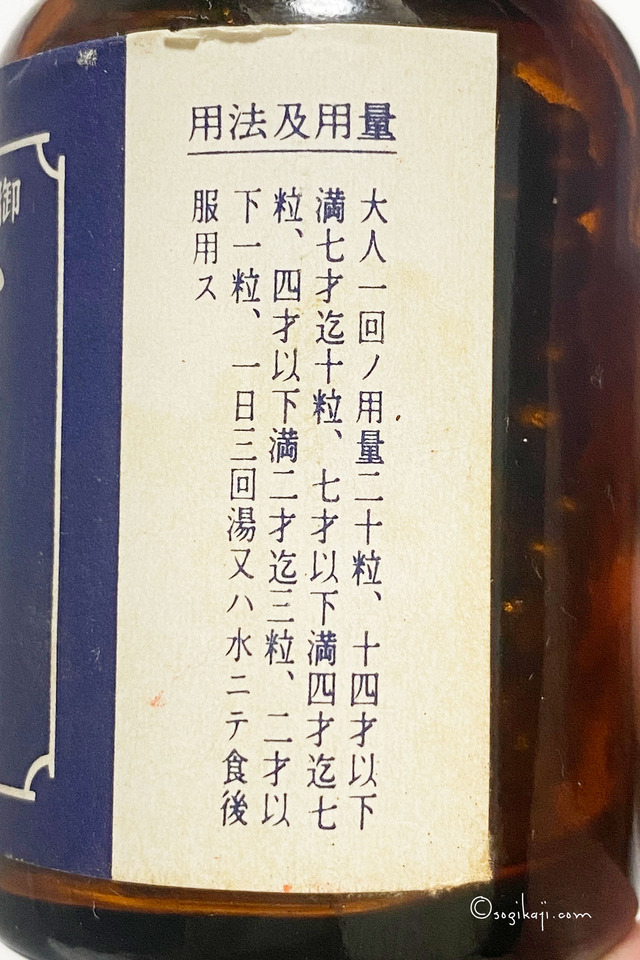 用法及用量
大人一回ノ用量二十粒、十四才以下
満七才迄十粒、七才以下満四才迄七
粒、四才以下満二才迄三粒、二才以
下一粒、一日三回湯又ハ水ニテ食後
服用ス
御
©sogikaji.com